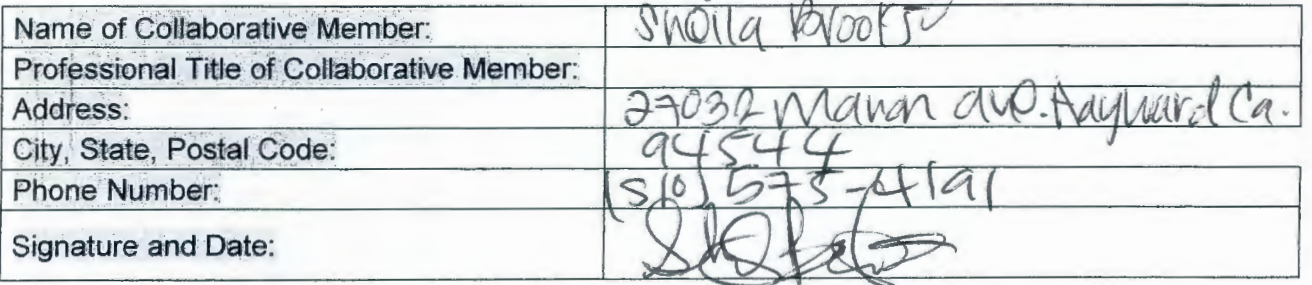 Name of Collaborative Member: Sheila Brooks
Professional Title of Collaborative Member:
Address: 27032 Manon ave. Hayward Ca.
City, State, Postal Code: 94544
Phone Number: (510) 575-4191
Signature and Date: